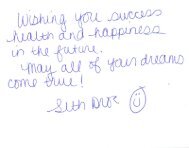 Wishing you success
health and happiness
in the future.
May all of your dreams
come true!